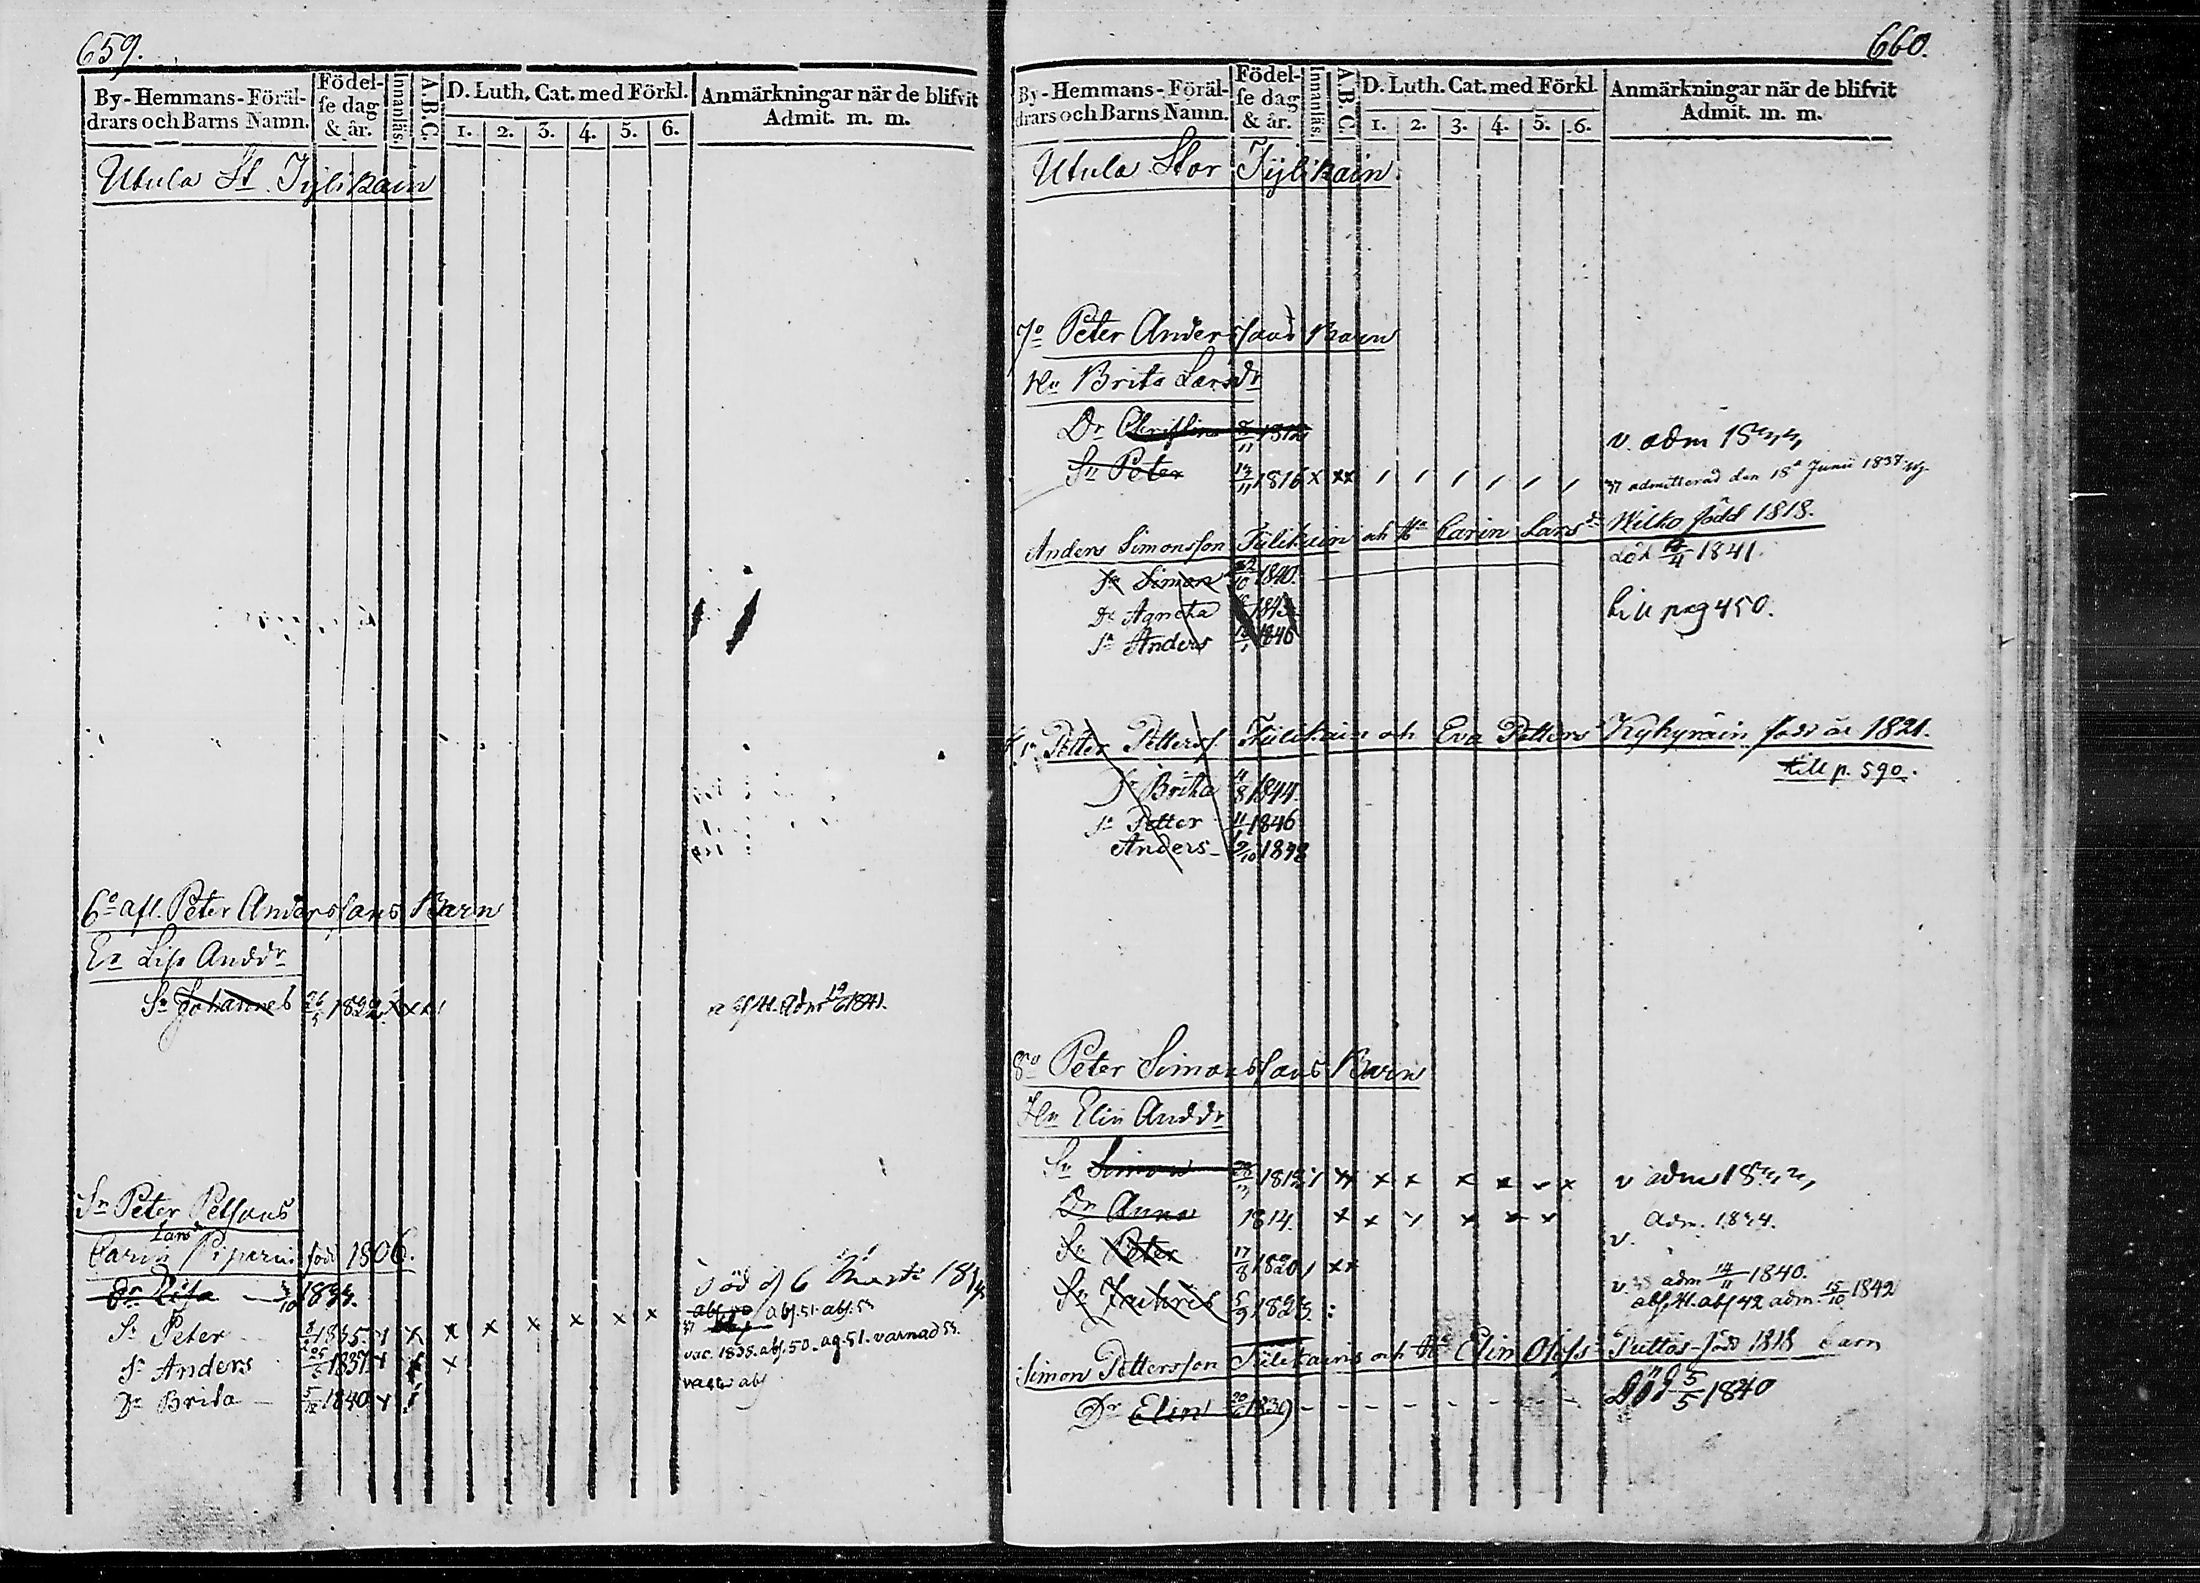 659.
By-Hemmans-Föräl-
drars och Barns Namn.
Födel-
se dag
& år.
Innanläs.
A.B.C.
D. Luth. Cat. med Förkl.
1. 2. 3. 4. 5. 6.
Anmärkningar när de blifvit
Admit. m. m.
Utula St. Tylikain
6o afl. Peter Anderssons Barn
Ea Lisa Andsdr
Sn Johannes 26/5 1822 x x x
Adm 19/6 1841.
Sn Peter Petssons
Lars
Carin Piparin född 1806.
Dr Lisa 3/10 1834.
död d 6 Martii 1834
Sn Peter 1835 x x x x x x x x
abs. 51. abs. 53
Sn Anders 25/5 1837 x x x
vac. 1838. abs. 50. ag. 51. varnad 53.
Dr Brita 1840 x
abs
660.
By-Hemmans-Föräl-
drars och Barns Namn.
Födel-
se dag
& år.
Innanläs.
A.B.C.
D. Luth. Cat. med Förkl.
1. 2. 3. 4. 5. 6.
Anmärkningar när de blifvit
Admit. m. m.
Utula Stor Tylikain
7o Peter Anderssons Barn
Hu Brita Larsdr
Dr Christina 1812
v. adm
Sn Peter 1816 x xx / / / / / /
admitterad den 18a Junii 1837
Anders Simonsson Tylikain och Ha Carin Larsdr Wilko född 1818.
Sn Simon 22/10 1840.
död 12/4 1841.
Dr Agneta 1843
till pag 450.
Sn Anders 1846
Sn Petter Petterss. Tylikain och Eva Petters Kykyräin född år 1821.
till p. 590.
Brita 11/8 1844.
Sn Petter 11/1 1846
Anders 9/10 1848
8o Peter Simonssons Barn
Hu Elin Andsdr
Sn Simon 1812 / xx x x x x x x
v adm
Dr Anna 1814. x x x x x x
Adm. 1834.
Sn Peter 17/8 1820 / xx
v.
v. adm 14/11 1840.
Sn Zachris 5/9 1823
abs. 41. abs 42 adm. 15/10 1842
Simon Pettersson Tylikains och Ha Elin Olofsdr Puttas född 1818 barn
Dr Elin 20/6 1839 - - - - - - - -
Död 5/5 1840